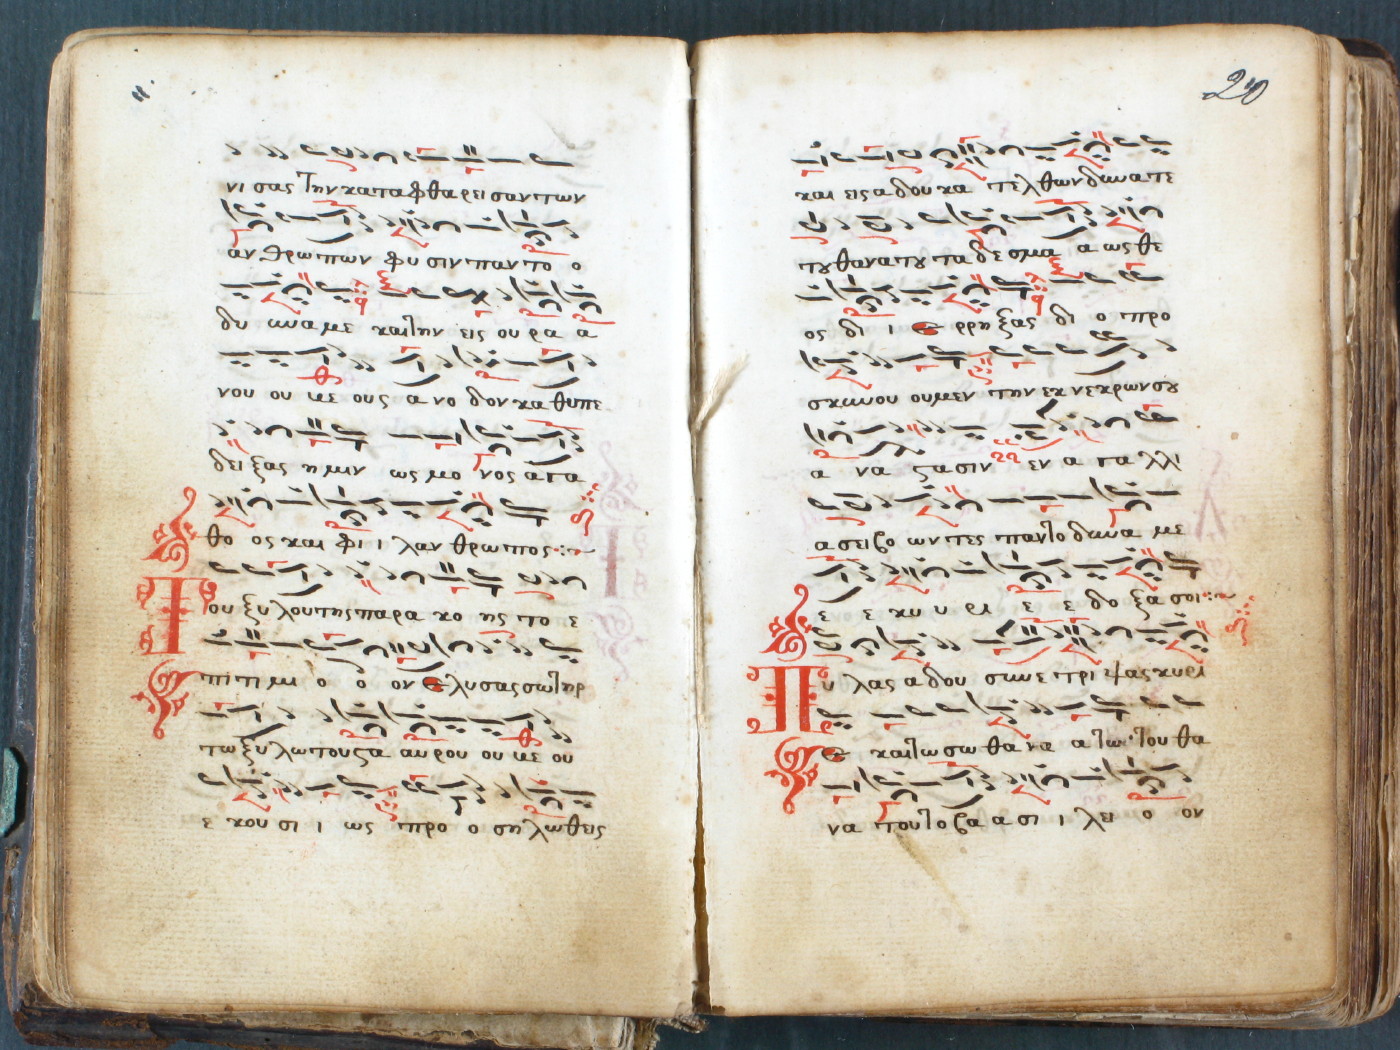 νι σας την κατα φθα ρει σαν των
αν θρω πων φυ σιν παν το ο
δυ υνα με και την εις ου ρα α
νου ου με ους α νο δον κα θυπε
δει ξας η μιν ως μο νος α γα
θο ος και φι ι λαν θρωπος
Του ξυ λου της παρα κο ης το ε
πι τι μι ο ο ον ε λυσας σωτηρ
τω ξυ λω του ςα αυρου ου με ου
ε κου σι ι ως προ ο ση λωθεις
20
και εις α δου κα τελ θων δυνατε
του θανατου τα δε σμα α ως θε
ος δι ι ε ρρηξας δι ο προ
σκυνου ουμεν την εκ νε κρων σου
α να ςα σιν εν α γα λλι
α σει βο ων τες παντο δυνα με
ε ε κυ υ ρι ε ε δο ξα σοι
Πυ λας α δου συνε τρι ψας κυρι
ε και τω σω θα να α τω του θα
να του το βα α σι ι λει ο ον